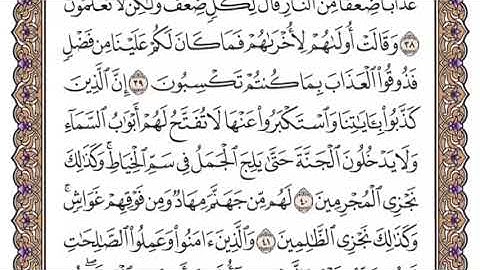 عَذَابًا ضِعْفًا مِّنَ ٱلنَّارِ قَالَ لِكُلٍّ ضِعْفٌ وَلَٰكِن لَّا تَعْلَمُونَ
٣٨ وَقَالَتْ أُولَىٰهُمْ لِأُخْرَىٰهُمْ فَمَا كَانَ لَكُمْ عَلَيْنَا مِن فَضْلٍ
فَذُوقُوا۟ ٱلْعَذَابَ بِمَا كُنتُمْ تَكْسِبُونَ ٣٩ إِنَّ ٱلَّذِينَ
كَذَّبُوا۟ بِـَٔايَٰتِنَا وَٱسْتَكْبَرُوا۟ عَنْهَا لَا تُفَتَّحُ لَهُمْ أَبْوَٰبُ ٱلسَّمَآءِ
وَلَا يَدْخُلُونَ ٱلْجَنَّةَ حَتَّىٰ يَلِجَ ٱلْجَمَلُ فِى سَمِّ ٱلْخِيَاطِ ۚ وَكَذَٰلِكَ
نَجْزِى ٱلْمُجْرِمِينَ ٤٠ لَهُم مِّن جَهَنَّمَ مِهَادٌ وَمِن فَوْقِهِمْ غَوَاشٍ ۚ
وَكَذَٰلِكَ نَجْزِى ٱلظَّٰلِمِينَ ٤١ وَٱلَّذِينَ ءَامَنُوا۟ وَعَمِلُوا۟ ٱلصَّٰلِحَٰتِ